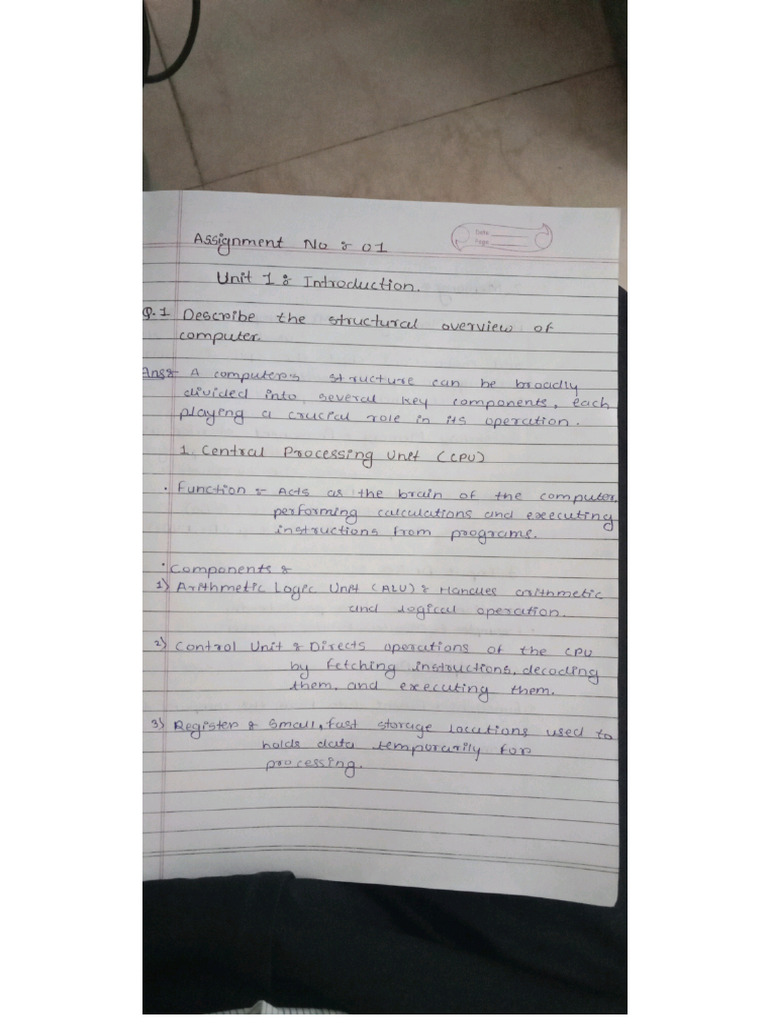 Date
Page
Assignment No : 01
Unit 1 : Introduction.
Q.1 Describe the structural overview of
computer.
Ans:- A computers structure can be broadly
divided into several key components, each
playing a crucial role in its operation.
1. Central Processing Unit (CPU)
• Function :- Acts as the brain of the computer,
performing calculations and executing
instructions from programs.
• Components :
1) Arithmetic Logic Unit (ALU) : Handles arithmetic
and logical operation.
2) Control Unit : Directs operations of the CPU
by fetching instructions, decoding
them, and executing them.
3) Register : Small, fast storage locations used to
holds data temporarily for
processing.